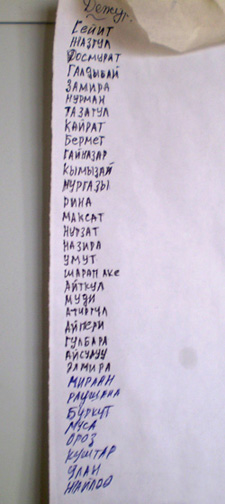 Дежур.
Сейит
Жазгул
Досмурат
Галдыбай
Замира
Нурман
Тазагул
Кайрат
Бермет
Гайназар
Кымызай
Нургазы
Дина
Максат
Нурзат
Назира
Умут
Шарап аке
Айткул
Муди
Атиргул
Айпери
Гулбара
Айсулуу
Элмира
Мирлан
Раушана
Буркут
Муса
Ороз
Куштар
Улан